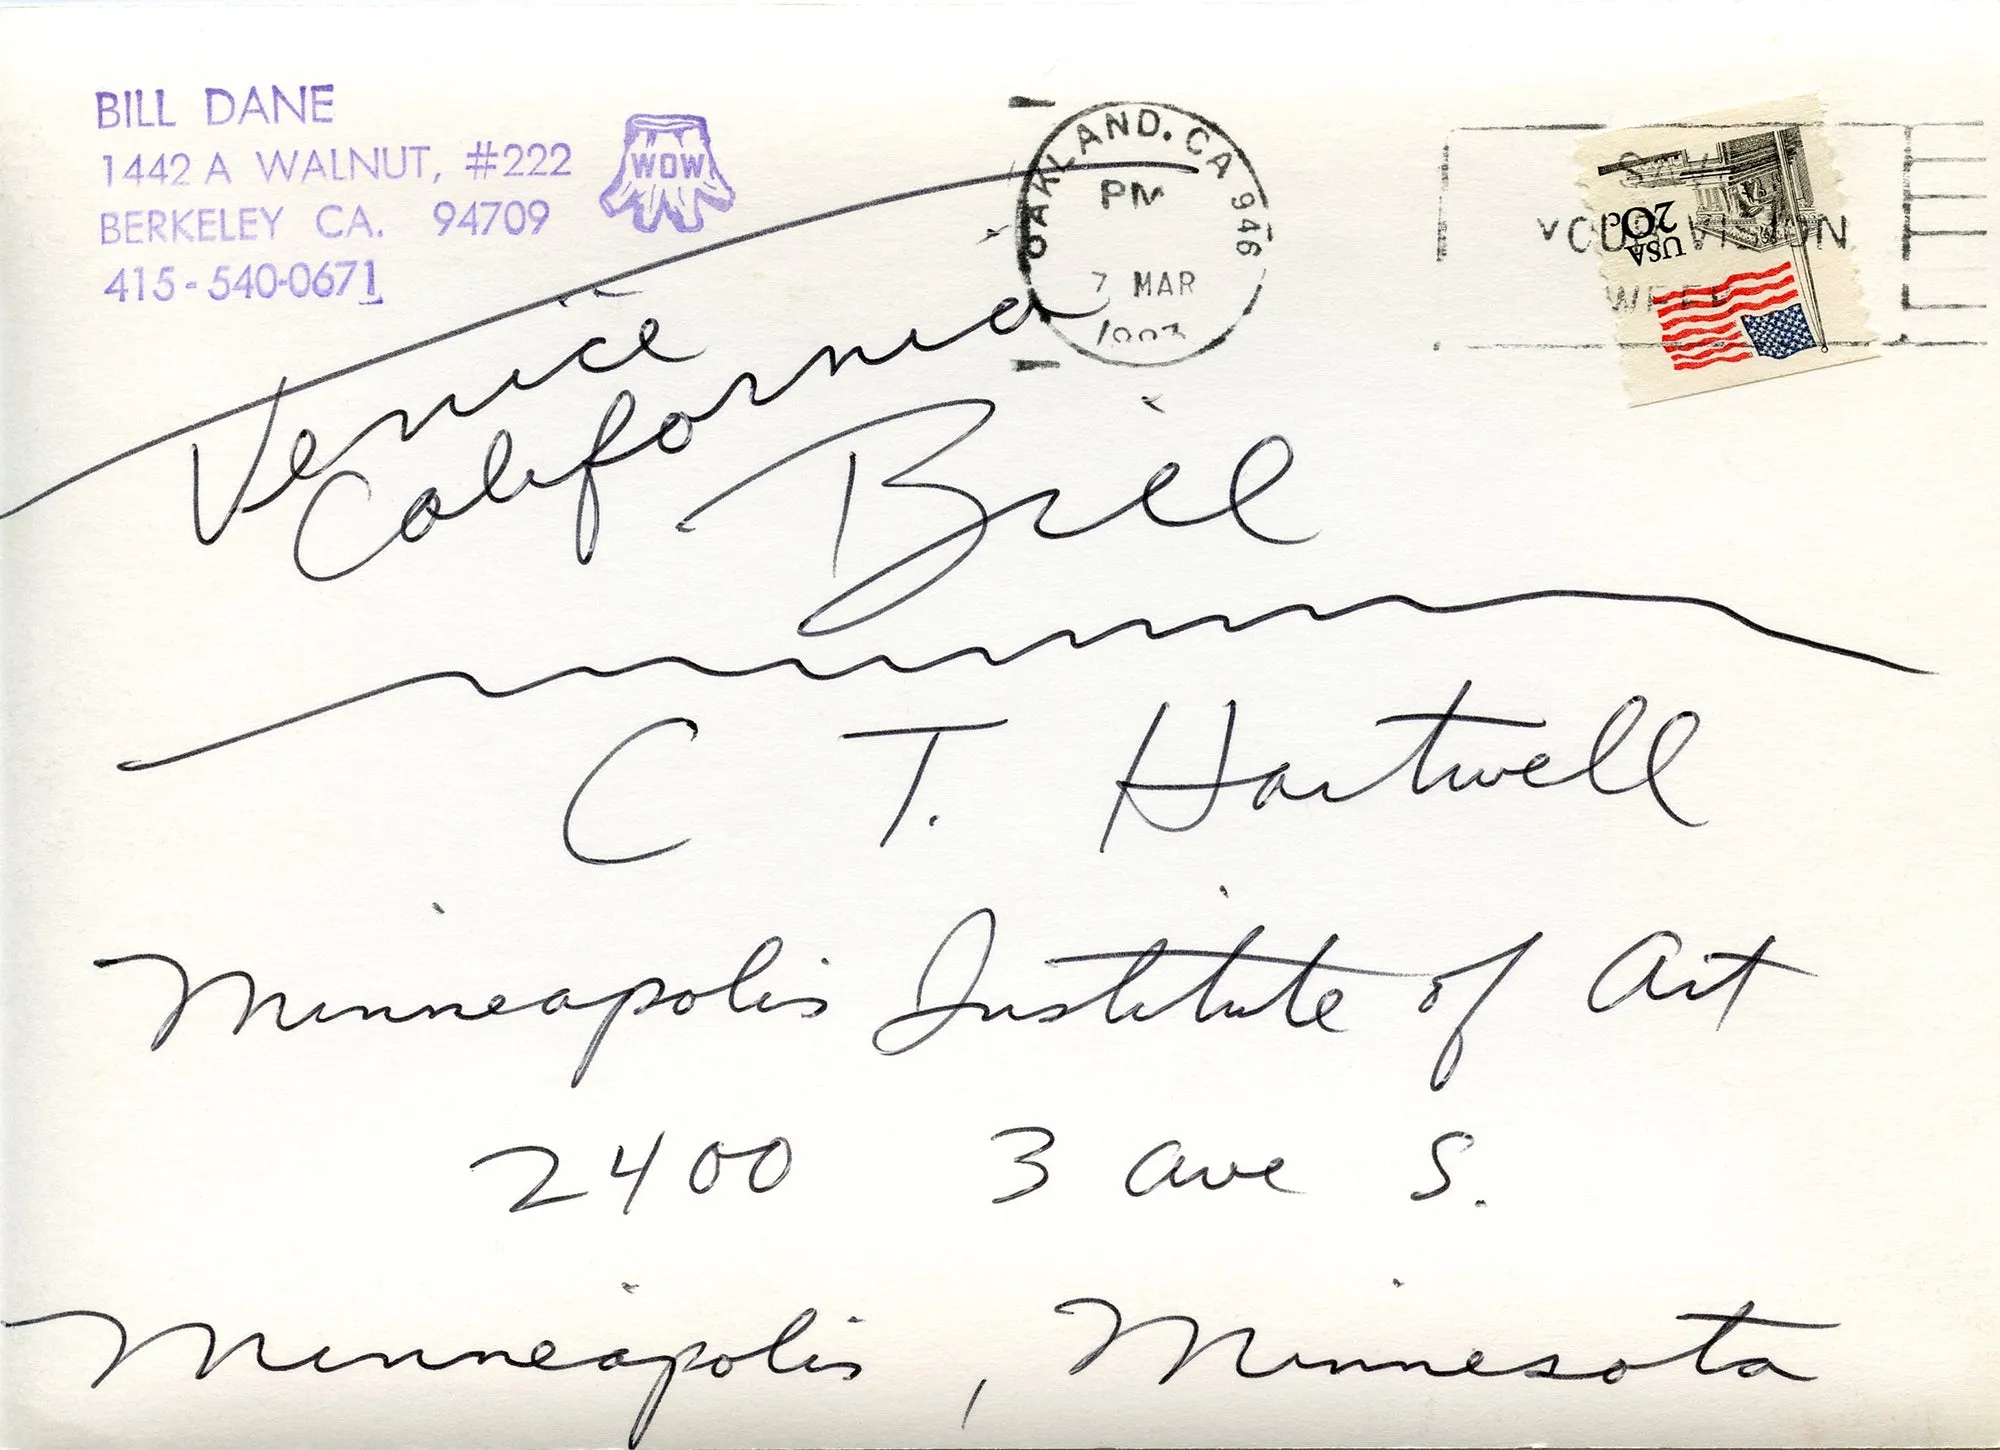 BILL DANE
1442 A WALNUT, #222
BERKELEY CA. 94709
415-540-0671
WOW
OAKLAND, CA 946
PM
7 MAR
USA
20c
VISION
WEEK
Venice
California
Bill
C T. Hartwell
Minneapolis Institute of Art
2400 3 ave S.
Minneapolis, Minnesota